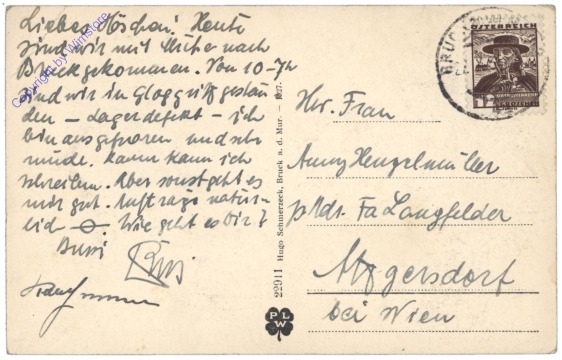 Liebes Höschen! Heute
sind wir mit Mühe nach
Bruck gekommen. Von 10-7h
sind wir in Gloggnitz gestan-
den – Lagerdefekt – ich
bin ausgefroren und sehr
müde. Kann kaum ich
schreiben. Aber sonst geht es
mir gut. Aufträge natür-
lich – 0. Wie geht es Dir?
Bussi
Copyright by Wimstore
BRUCK
ÖSTERREICH
12
GROSCHEN
Frau
Anny Hengelmüller
Fa Langfelder
Atzgersdorf
bei Wien
22911 Hugo Schmerzeck, Bruck a. d. Mur. – 1927.
PLW